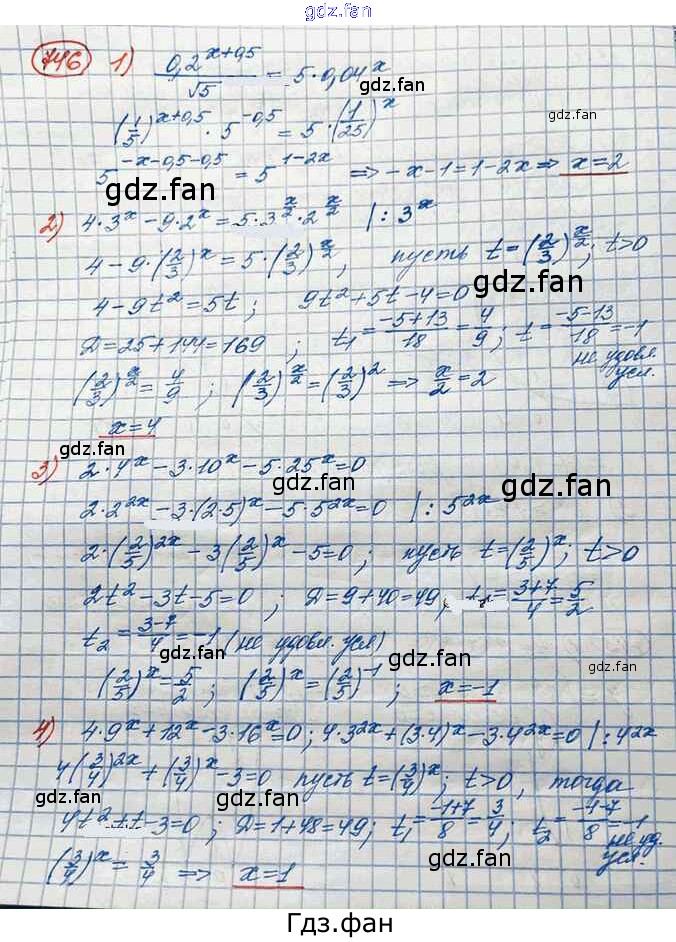 gdz.fan
746 1) 0,2^(x+0,5)/√5 = 5·0,04^x
gdz.fan
(1/5)^(x+0,5) · 5^(-0,5) = 5·(1/25)^x
5^(-x-0,5-0,5) = 5^(1-2x) => -x-1=1-2x => x=2
gdz.fan
gdz.fan
2) 4·3^x - 9·2^x = 5·3^(x/2)·2^(x/2) |:3^x
4-9·(2/3)^x = 5·(2/3)^(x/2), пусть t=(2/3)^(x/2); t>0
gdz.fan
4-9t²=5t; 9t²+5t-4=0
Д=25+144=169; t₁=(-5+13)/18=4/9; t=(-5-13)/18=-1
не удовл. усл.
(2/3)^(x/2)=4/9; (2/3)^(x/2)=(2/3)² => x/2=2
gdz.fan
x=4
gdz.fan
3) 2·4^x-3·10^x-5·25^x=0
gdz.fan
2·2^(2x)-3·(2·5)^x-5·5^(2x)=0 |:5^(2x)
2·(2/5)^(2x)-3(2/5)^x-5=0; пусть t=(2/5)^x; t>0
gdz.fan
2t²-3t-5=0; Д=9+40=49, t₁=(3+7)/4=5/2
t₂=(3-7)/4=-1 (не удовл. усл)
gdz.fan
gdz.fan
(2/5)^x=5/2; (2/5)^x=(2/5)^(-1); x=-1
4) 4·9^x+12^x-3·16^x=0; 4·3^(2x)+(3·4)^x-3·4^(2x)=0 |:4^(2x)
gdz.fan
4(3/4)^(2x)+(3/4)^x-3=0 пусть t=(3/4)^x; t>0, тогда
gdz.fan
gdz.fan
4t²+t-3=0; Д=1+48=49; t₁=(-1+7)/8=3/4; t₂=(-1-7)/8=-1
не уд. усл.
gdz.fan
(3/4)^x=3/4 => x=1
Гдз.фан